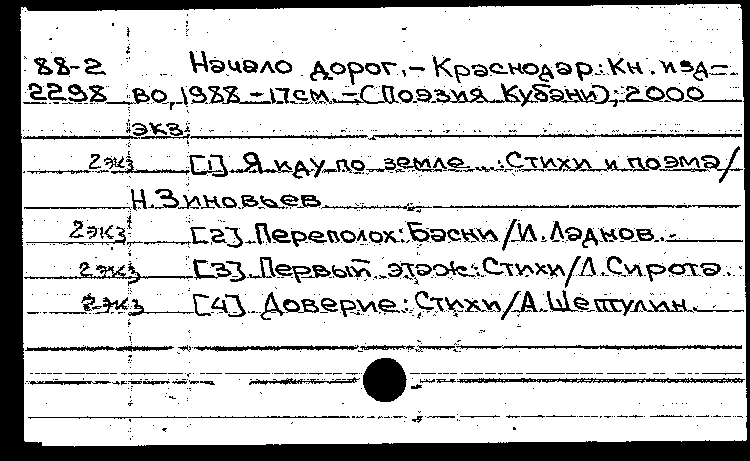 88-2 Начало дорог.- Краснодар: Кн. изд-
2298 во, 1988 - 17см. - (Поэзия Кубани); 2000
экз.
2экз [1] Я иду по земле...: Стихи и поэма/
Н.Зиновьев
2экз [2] Переполох: Басни/И.Ладнов.-
2экз [3] Первый этаж: Стихи/Л.Сирота
2экз [4] Доверие: Стихи/А.Шептулин.